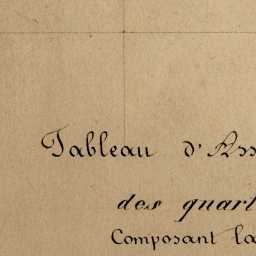 Tableau d'Ass
des quart
Composant la